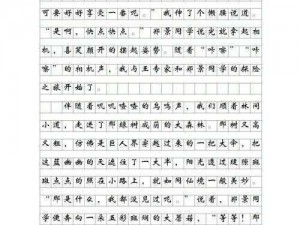 可要好好享受一番呢。”我伸了个懒腰说道
“是啊，快点快点。”郑景同学说完就拿起相
机，喜笑颜开的摆起姿势。随着“咔嚓”“咔
嚓”的相机声，我与王专家和郑景同学的探险
之旅开始了
伴随着叽叽喳喳的鸟鸣声，我们顺着林间
小道，走进了郁绿树成荫的大森林。那树又高
又粗，仿佛是巨人家拿起过来的一把大伞，把
这蓝幽幽的天遮住了一大半，阳光透过缝隙斑
斑点点的照在小路上，就如同仙境一般美妙。
“那是什么，我都没见过呢。”说着，郑景同
学便奔向一朵五彩斑斓的大蘑菇，“等等！那